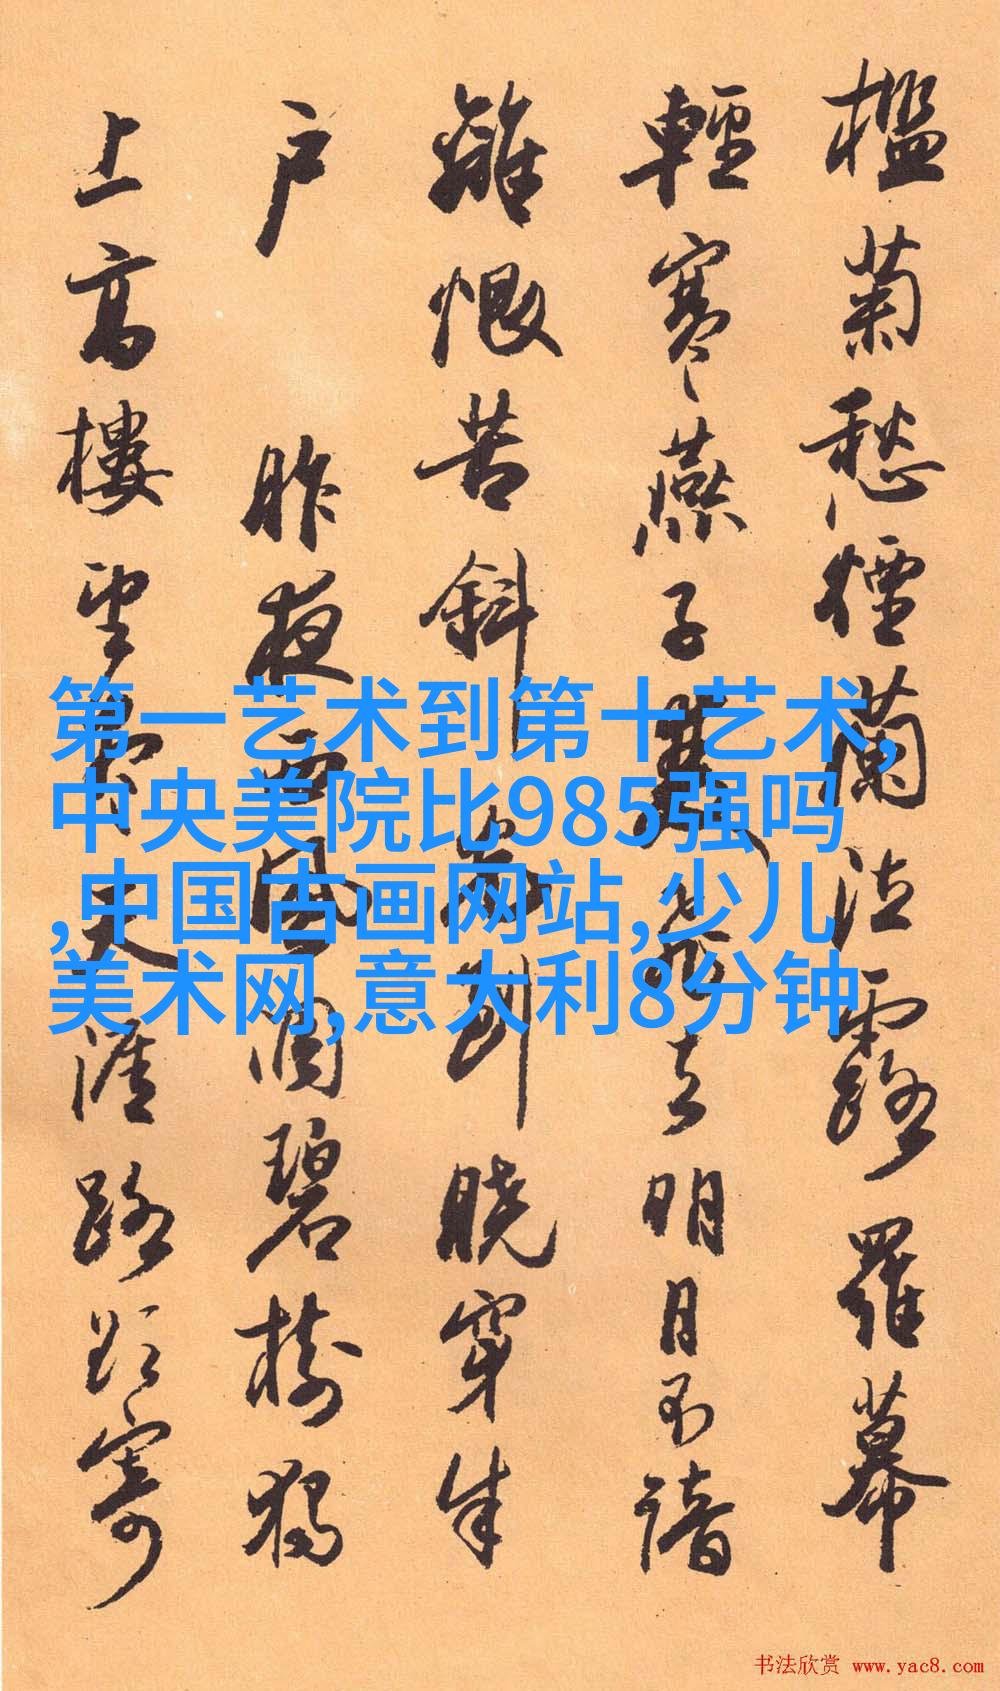 檻菊愁煙蘭泣露羅幕
輕寒燕子雙飛去明月不諳
離恨苦斜光到曉穿朱
户 昨夜西風凋碧樹獨
上高樓望盡天涯路欲寄
第一艺术到第十艺术,
中央美院比985强吗
,中国古画网站,少儿
美术网,意大利8分钟
书法欣赏 www.yac8.com